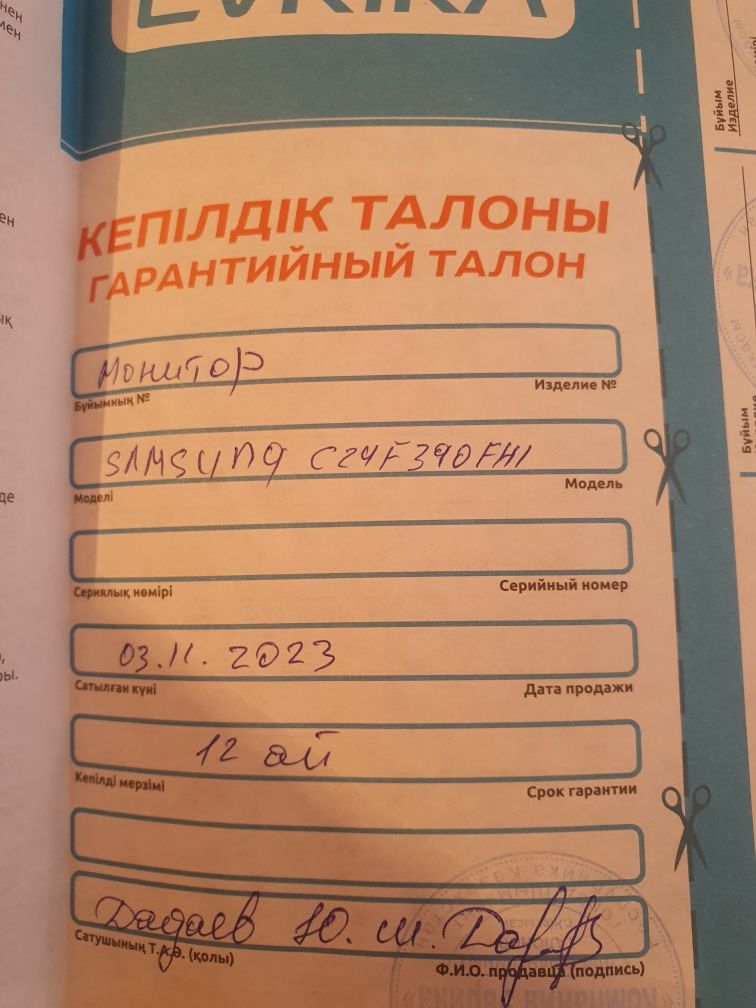 EVRIKA
КЕПІЛДІК ТАЛОНЫ
ГАРАНТИЙНЫЙ ТАЛОН
Монитор
Бұйымның № Изделие №
SAMSUNG C24F390FHI
Моделі Модель
Сериялық нөмірі Серийный номер
03.11.2023
Сатылған күні Дата продажи
12 ай
Кепілді мерзімі Срок гарантии
Дадаев Ю.М.
Сатушының Т.А.Ә. (қолы) Ф.И.О. продавца (подпись)
Бұйым
Изделие
Бұйым